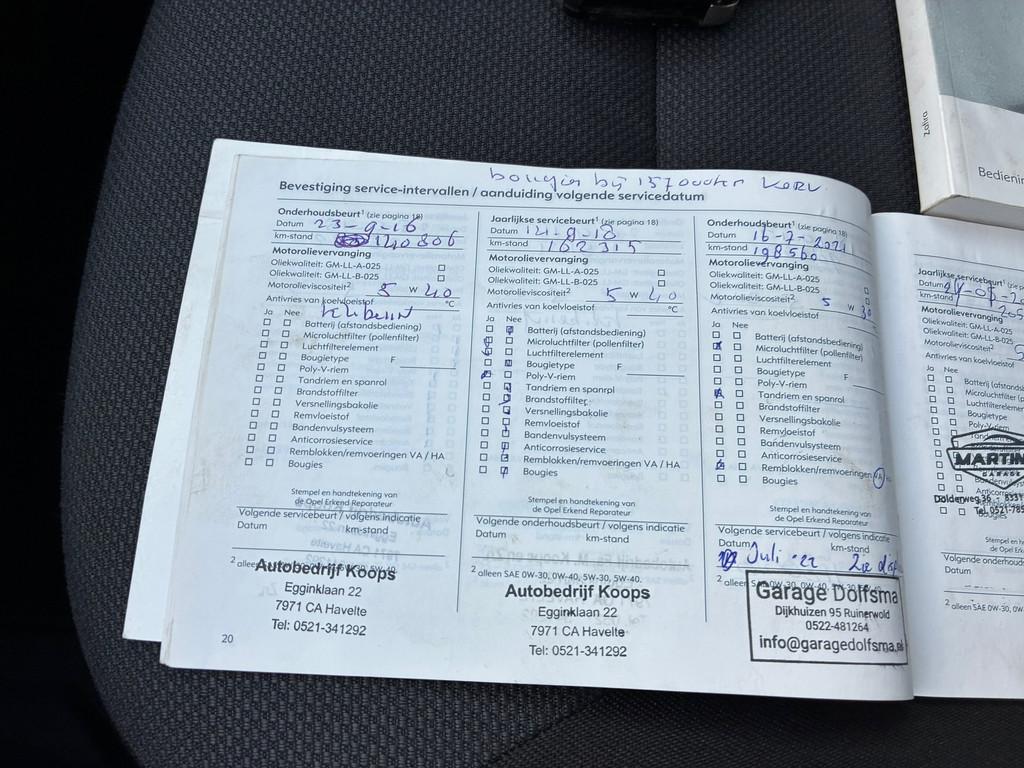 bougies bij 157000km
Bevestiging service-intervallen / aanduiding volgende servicedatum
Onderhoudsbeurt¹ (zie pagina 18)
Datum 23-9-16
km-stand 140806
Motorolievervanging
Oliekwaliteit: GM-LL-A-025
Oliekwaliteit: GM-LL-B-025
Motorolieviscositeit² 5 W 40
Antivries van koelvloeistof °C
Ja Nee
Batterij (afstandsbediening)
Microluchtfilter (pollenfilter)
Luchtfilterelement
Bougietype F
Poly-V-riem
Tandriem en spanrol
Brandstoffilter
Versnellingsbakolie
Remvloeistof
Bandenvulsysteem
Anticorrosieservice
Remblokken/remvoeringen VA / HA
Bougies
Stempel en handtekening van
de Opel Erkend Reparateur
Volgende servicebeurt / volgens indicatie
Datum km-stand
² alleen SAE 0W-30, 0W-40, 5W-30, 5W-40.
Autobedrijf Koops
Egginklaan 22
7971 CA Havelte
Tel: 0521-341292
20
Jaarlijkse servicebeurt¹ (zie pagina 18)
Datum 14-9-18
km-stand 162315
Motorolievervanging
Oliekwaliteit: GM-LL-A-025
Oliekwaliteit: GM-LL-B-025
Motorolieviscositeit² 5 W 40
Antivries van koelvloeistof °C
Ja Nee
Batterij (afstandsbediening)
Microluchtfilter (pollenfilter)
Luchtfilterelement
Bougietype F
Poly-V-riem
Tandriem en spanrol
Brandstoffilter
Versnellingsbakolie
Remvloeistof
Bandenvulsysteem
Anticorrosieservice
Remblokken/remvoeringen VA / HA
Bougies
Stempel en handtekening van
de Opel Erkend Reparateur
Volgende onderhoudsbeurt / volgens indicatie
Datum km-stand
² alleen SAE 0W-30, 0W-40, 5W-30, 5W-40.
Autobedrijf Koops
Egginklaan 22
7971 CA Havelte
Tel: 0521-341292
Onderhoudsbeurt¹ (zie pagina 18)
Datum 16-7-2021
km-stand 198560
Motorolievervanging
Oliekwaliteit: GM-LL-A-025
Oliekwaliteit: GM-LL-B-025
Motorolieviscositeit² 5 W 30
Antivries van koelvloeistof °C
Ja Nee
Batterij (afstandsbediening)
Microluchtfilter (pollenfilter)
Luchtfilterelement
Bougietype F
Poly-V-riem
Tandriem en spanrol
Brandstoffilter
Versnellingsbakolie
Remvloeistof
Bandenvulsysteem
Anticorrosieservice
Remblokken/remvoeringen VA
Bougies
Stempel en handtekening van
de Opel Erkend Reparateur
Volgende servicebeurt / volgens indicatie
Datum km-stand
Juli -22
² alleen SAE 0W-30, 0W-40, 5W-30, 5W-40.
Garage Dolfsma
Dijkhuizen 95 Ruinerwold
0522-481264
info@garagedolfsma.nl
Jaarlijkse servicebeurt¹ (zie
Datum
km-stand
Motorolievervanging
Oliekwaliteit: GM-LL-A-025
Oliekwaliteit: GM-LL-B-025
Motorolieviscositeit²
Antivries van koelvloeistof
Ja Nee
Batterij (afstandsbe
Microluchtfilter (po
Luchtfilterelement
Bougietype
Poly-V-riem
MARTIN
GARAGE
Dolderweg 36 - 8331
Tel. 0521-785
Volgende onderhouds
Datum
² alleen SAE 0W-30, 0W
Zafira
Bedienin